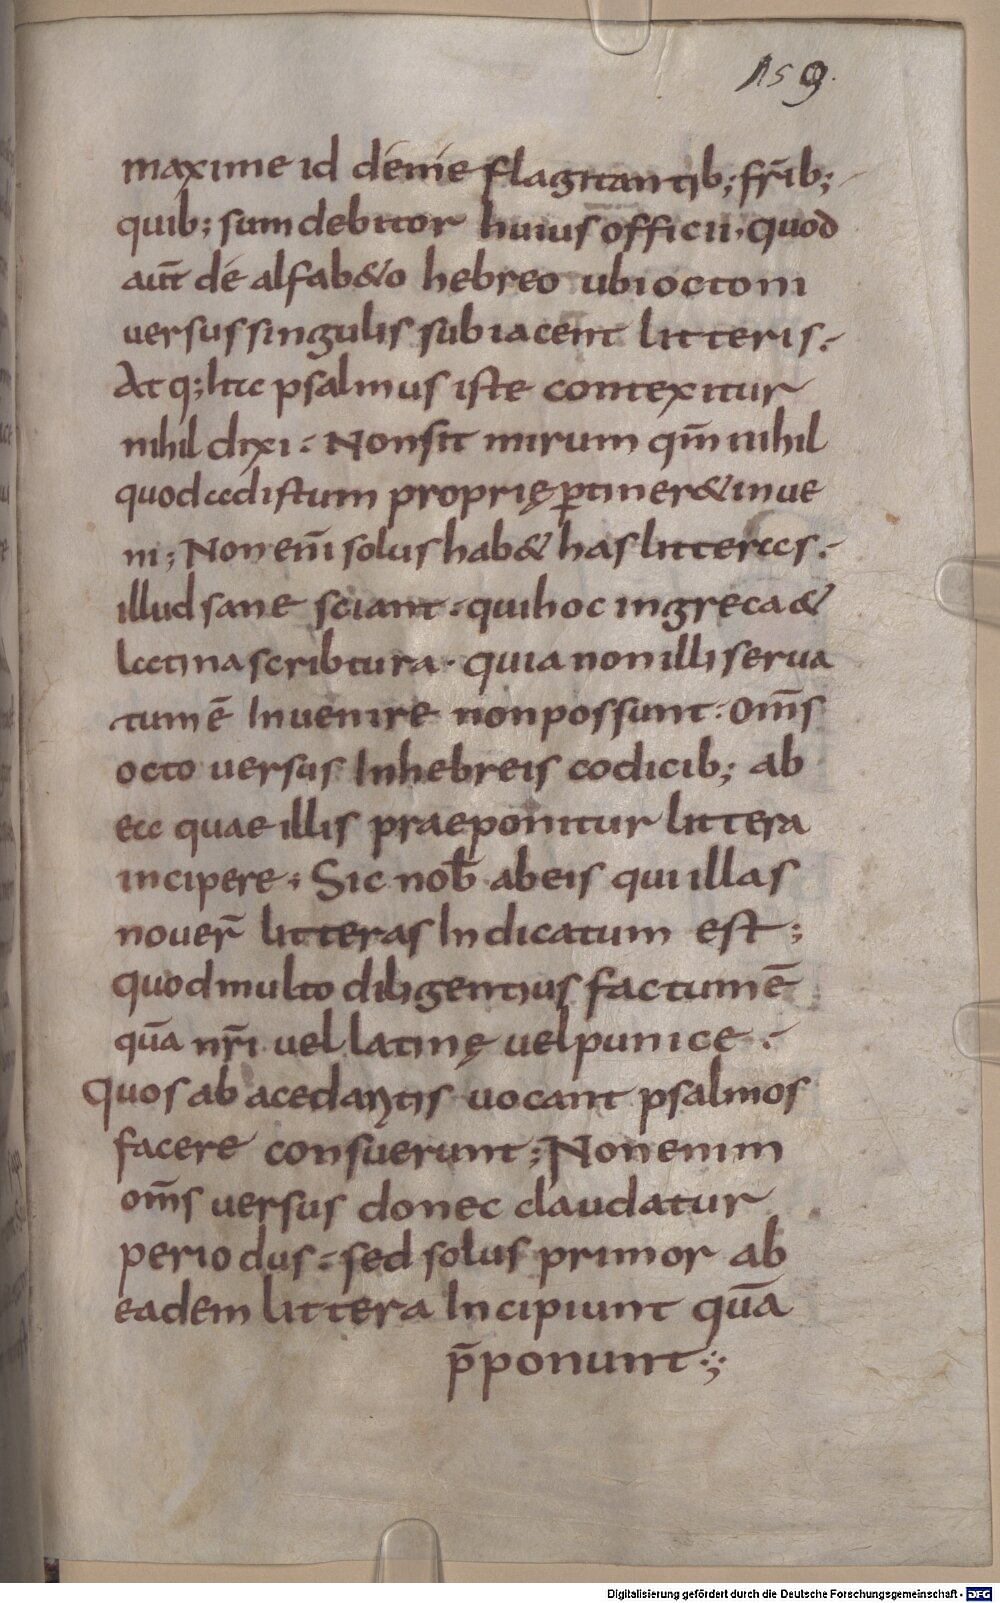 159.
maxime id deme flagitantib; fr̄ib;
quib; sum debitor huius officii. quod
aut̄ de alfab&o hebreo ubi octoni
uersus singulis subiacent litteris.
Atq; hic psalmus iste contexitur
nihil dixi. Non sit mirum qm̄ nihil
quod ad istum proprię ꝑtiner& inue
ni; Non eni̅ solus hab& has litteras.
illud sane sciant. qui hoc in greca &
latina scribtura. quia non illi serua
tum ē Inuenire non possunt. om̄s
octo uersus Inhebreis codicib; ab
ea quae illis praeponitur littera
incipere; Sic nob̄ abeis qui illas
nouer̄ litteras Indicatum est;
quod multo diligentius factum ē
quā nr̄i uel latinę uel punice.
Quos ab acedariis uocant psalmos
facere consuerunt; Non enim
om̄s uersus donec claudatur
periodus. sed solus primor ab
eadem littera Incipiunt quā
p̄ponunt.
Digitalisierung gefördert durch die Deutsche Forschungsgemeinschaft - DFG